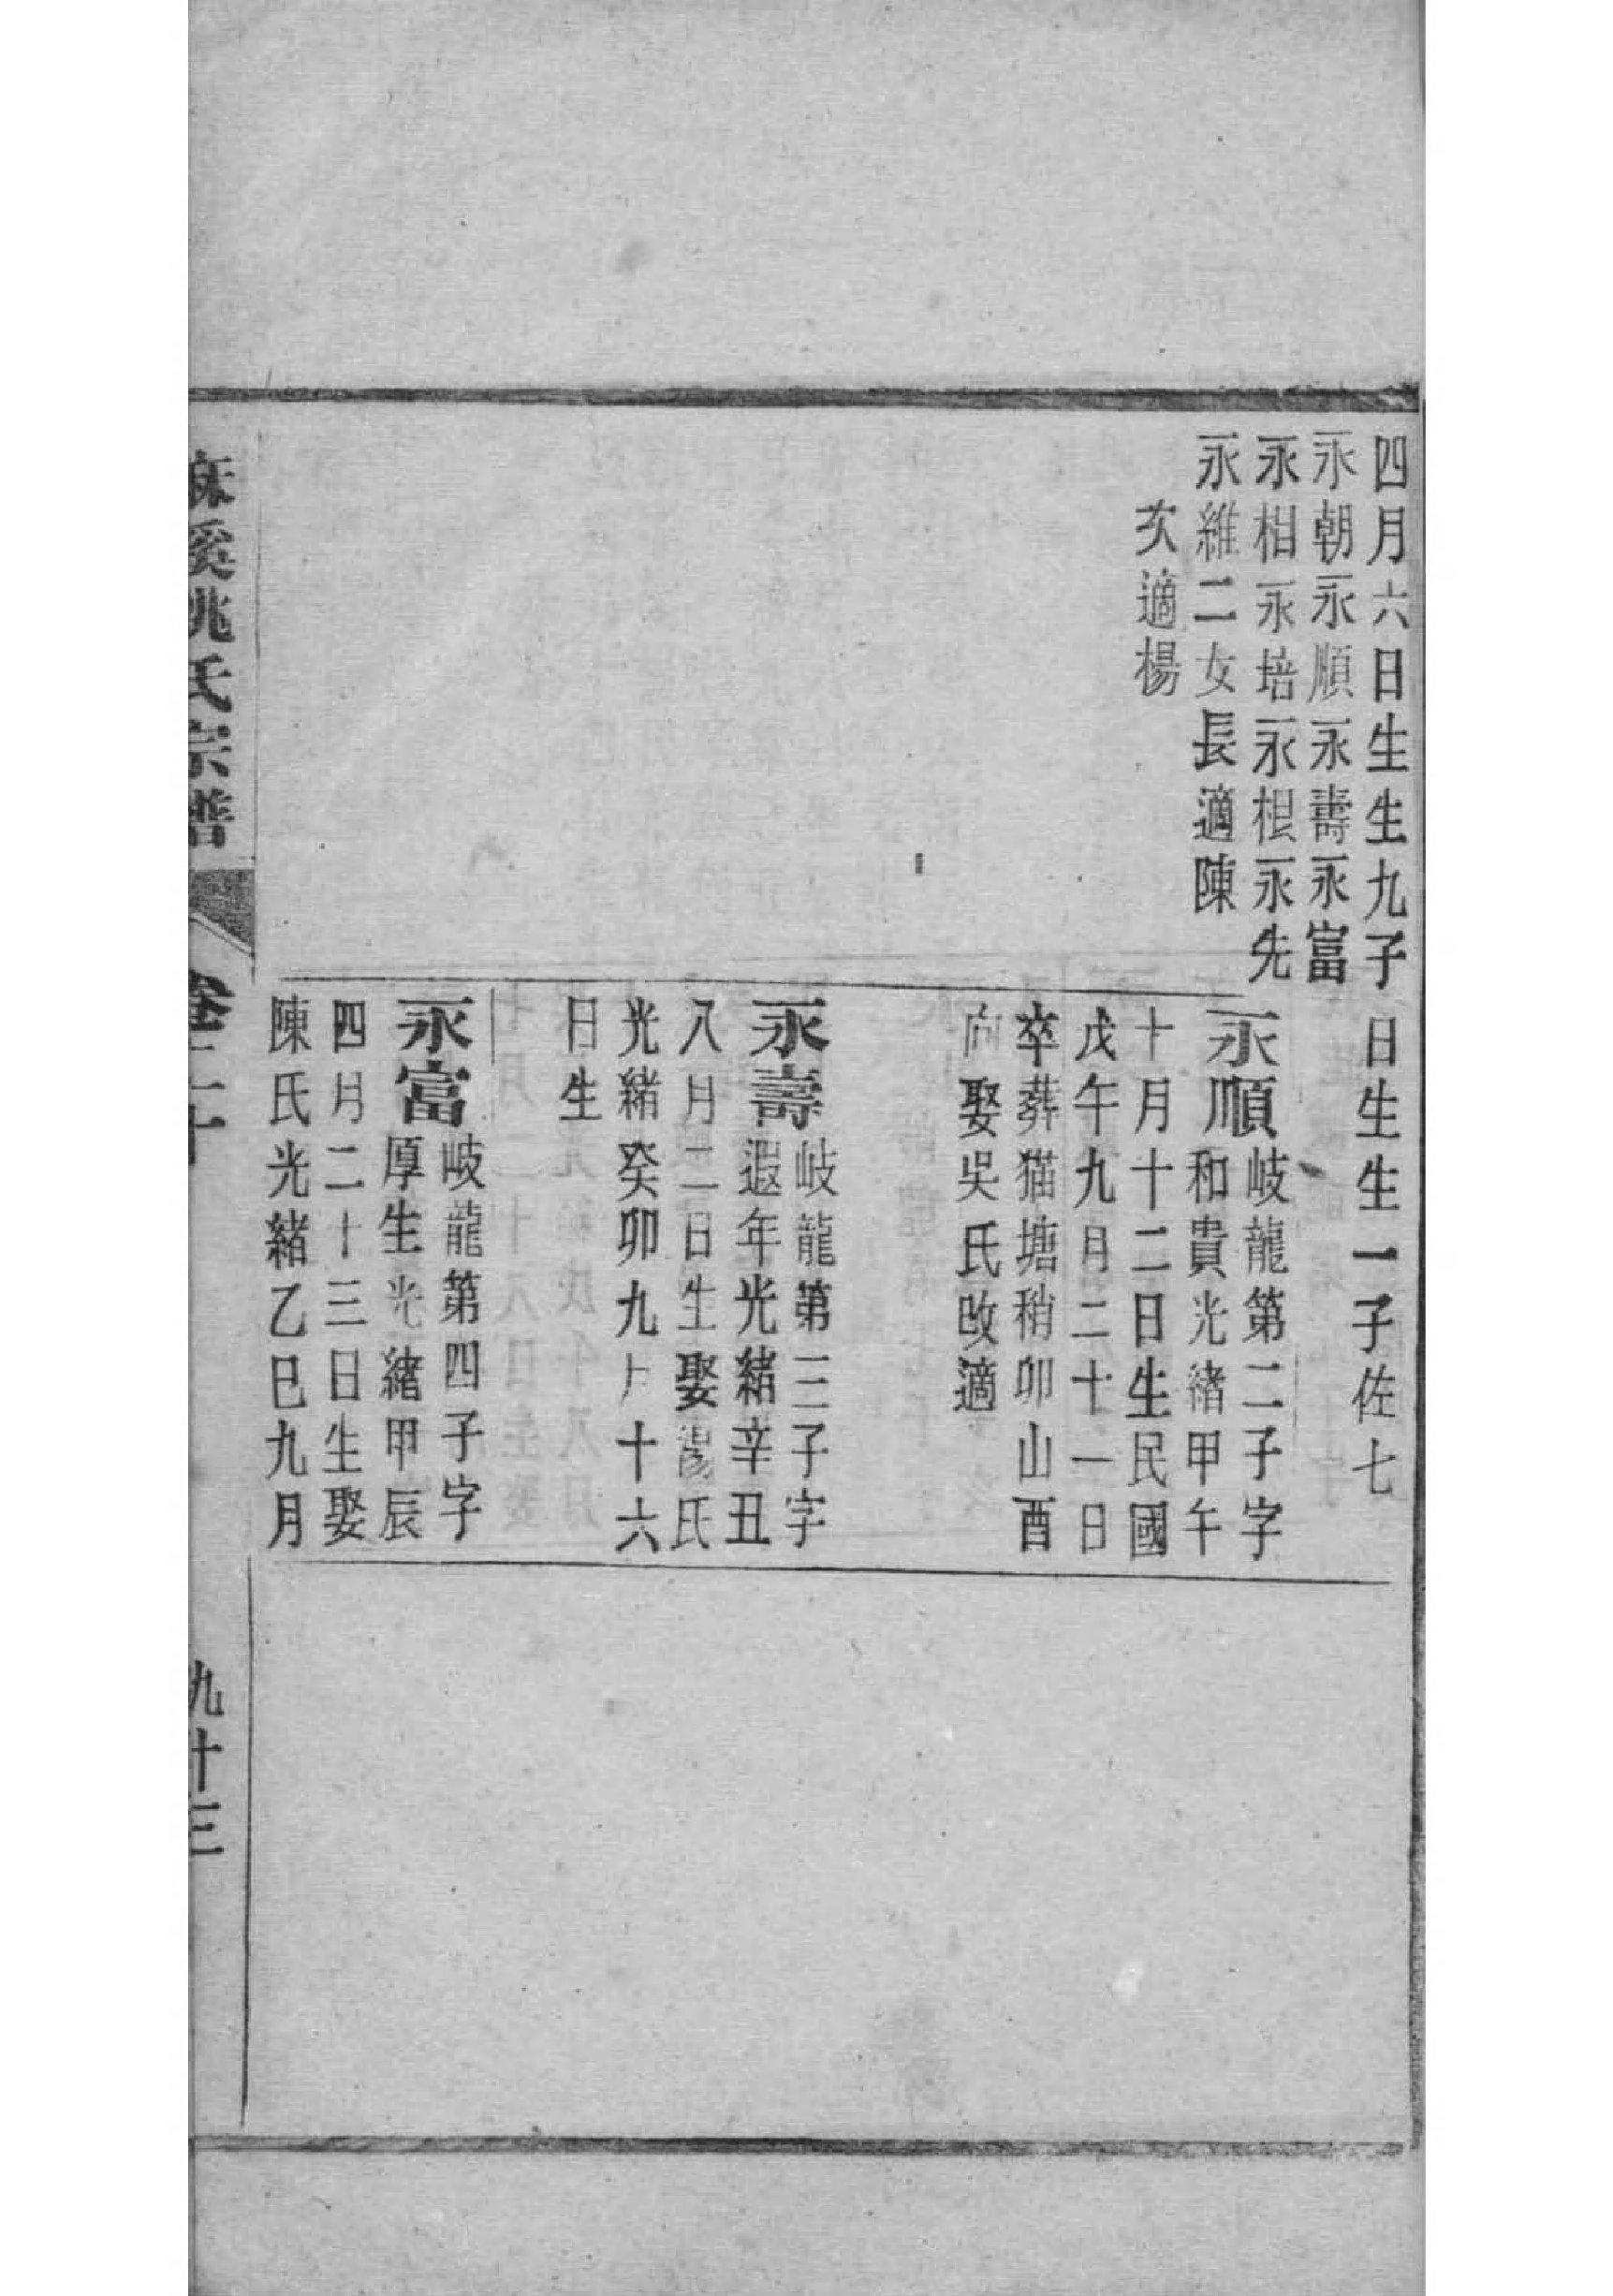 四月六日生生九子
永朝永順永壽永富
永相永培永根永先
永維二女長適陳
次適楊
日生生一子佐七
永順
岐龍第二子字
和貴光緒甲午
十月十二日生民國
戊午九月二十一日
卒葬猫塘稍卯山酉
向娶吳氏改適
永壽
岐龍第三子字
遐年光緒辛丑
八月二日生娶楊氏
光緒癸卯九月十六
日生
永富
岐龍第四子字
厚生光緒甲辰
四月二十三日生娶
陳氏光緒乙巳九月
麻溪姚氏宗譜
卷二十
九十三